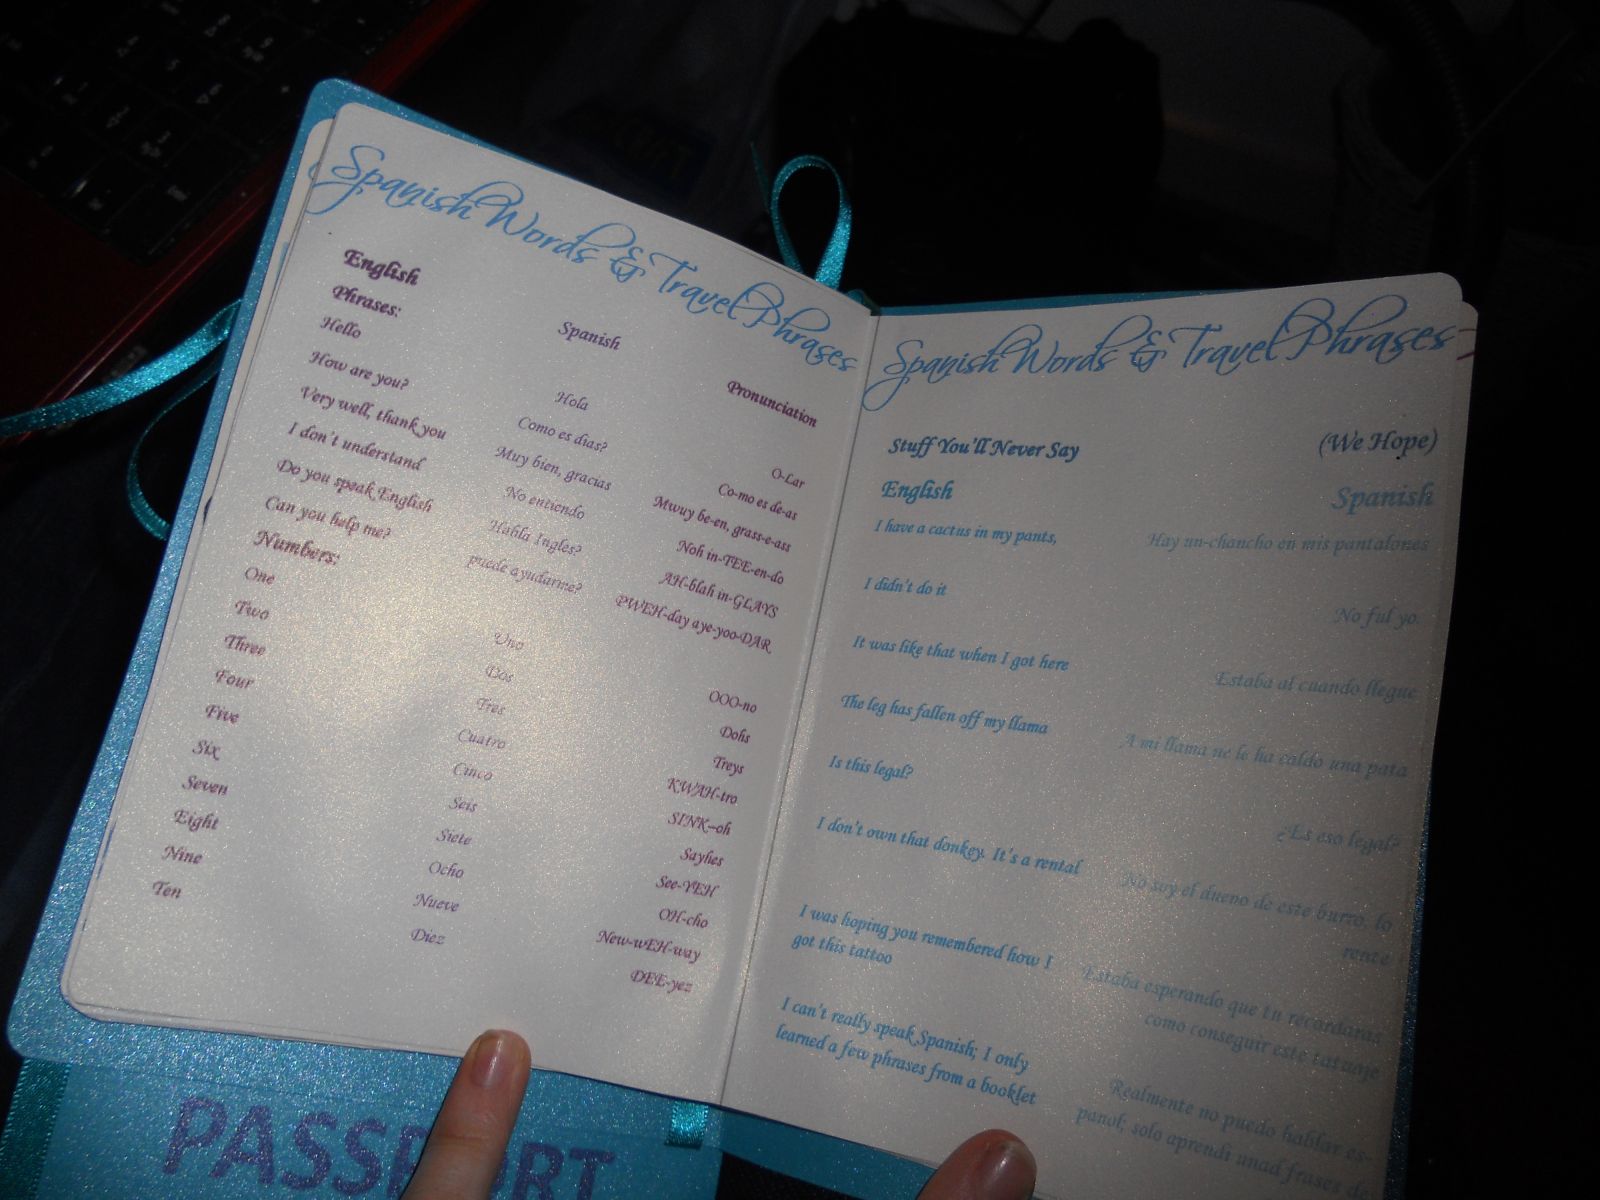 Spanish Words & Travel Phrases
English
Spanish
Pronunciation
Phrases:
Hello
Hola
O-Lar
How are you?
Como es dias?
Co-mo es de-as
Very well, thank you
Muy bien, gracias
Mwuy be-en, grass-e-ass
I don't understand
No entiendo
Noh in-TEE-en-do
Do you speak English
Habla Ingles?
AH-blah in-GLAYS
Can you help me?
puede ayudarme?
PWEH-day aye-yoo-DAR
Numbers:
One
Uno
OOO-no
Two
Dos
Dohs
Three
Tres
Treys
Four
Cuatro
KWAH-tro
Five
Cinco
SINK-oh
Six
Seis
Sayhes
Seven
Siete
See-YEH
Eight
Ocho
OH-cho
Nine
Nueve
New-wEH-way
Ten
Diez
DEE-yez
Spanish Words & Travel Phrases
Stuff You'll Never Say
(We Hope)
English
Spanish
I have a cactus in my pants,
Hay un-chancho en mis pantalones
I didn't do it
No ful yo.
It was like that when I got here
Estaba al cuando llegue
The leg has fallen off my llama
A mi llama ne le ha caldo una pata
Is this legal?
¿Es eso legal?
I don't own that donkey. It's a rental
No soy el dueno de este burro, lo
rente
I was hoping you remembered how I
got this tattoo
Estaba esperando que tu recordaras
como conseguir este tatuaje
I can't really speak Spanish; I only
learned a few phrases from a booklet
Realmente no puedo hablar es-
panol; solo aprendi unad frases de
PASSPORT